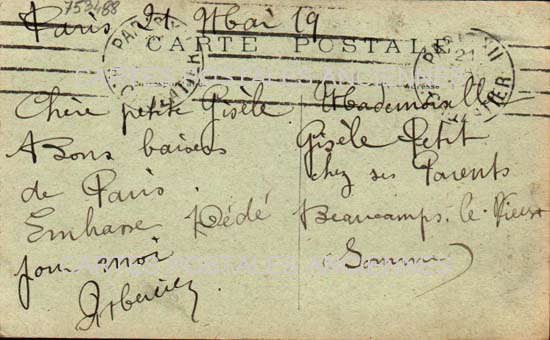 753488
Paris 21 Mai 19
CARTE POSTALE
Chère petite Gisèle
Bons baisers
de Paris.
Embrasse Dédé
pour moi
Mademoiselle
Gisèle Petit
chez ses Parents
Beaucamps-le-Vieux
Somme
CARTES POSTALES ANCIENNES
CARTES POSTALES ANCIENNES